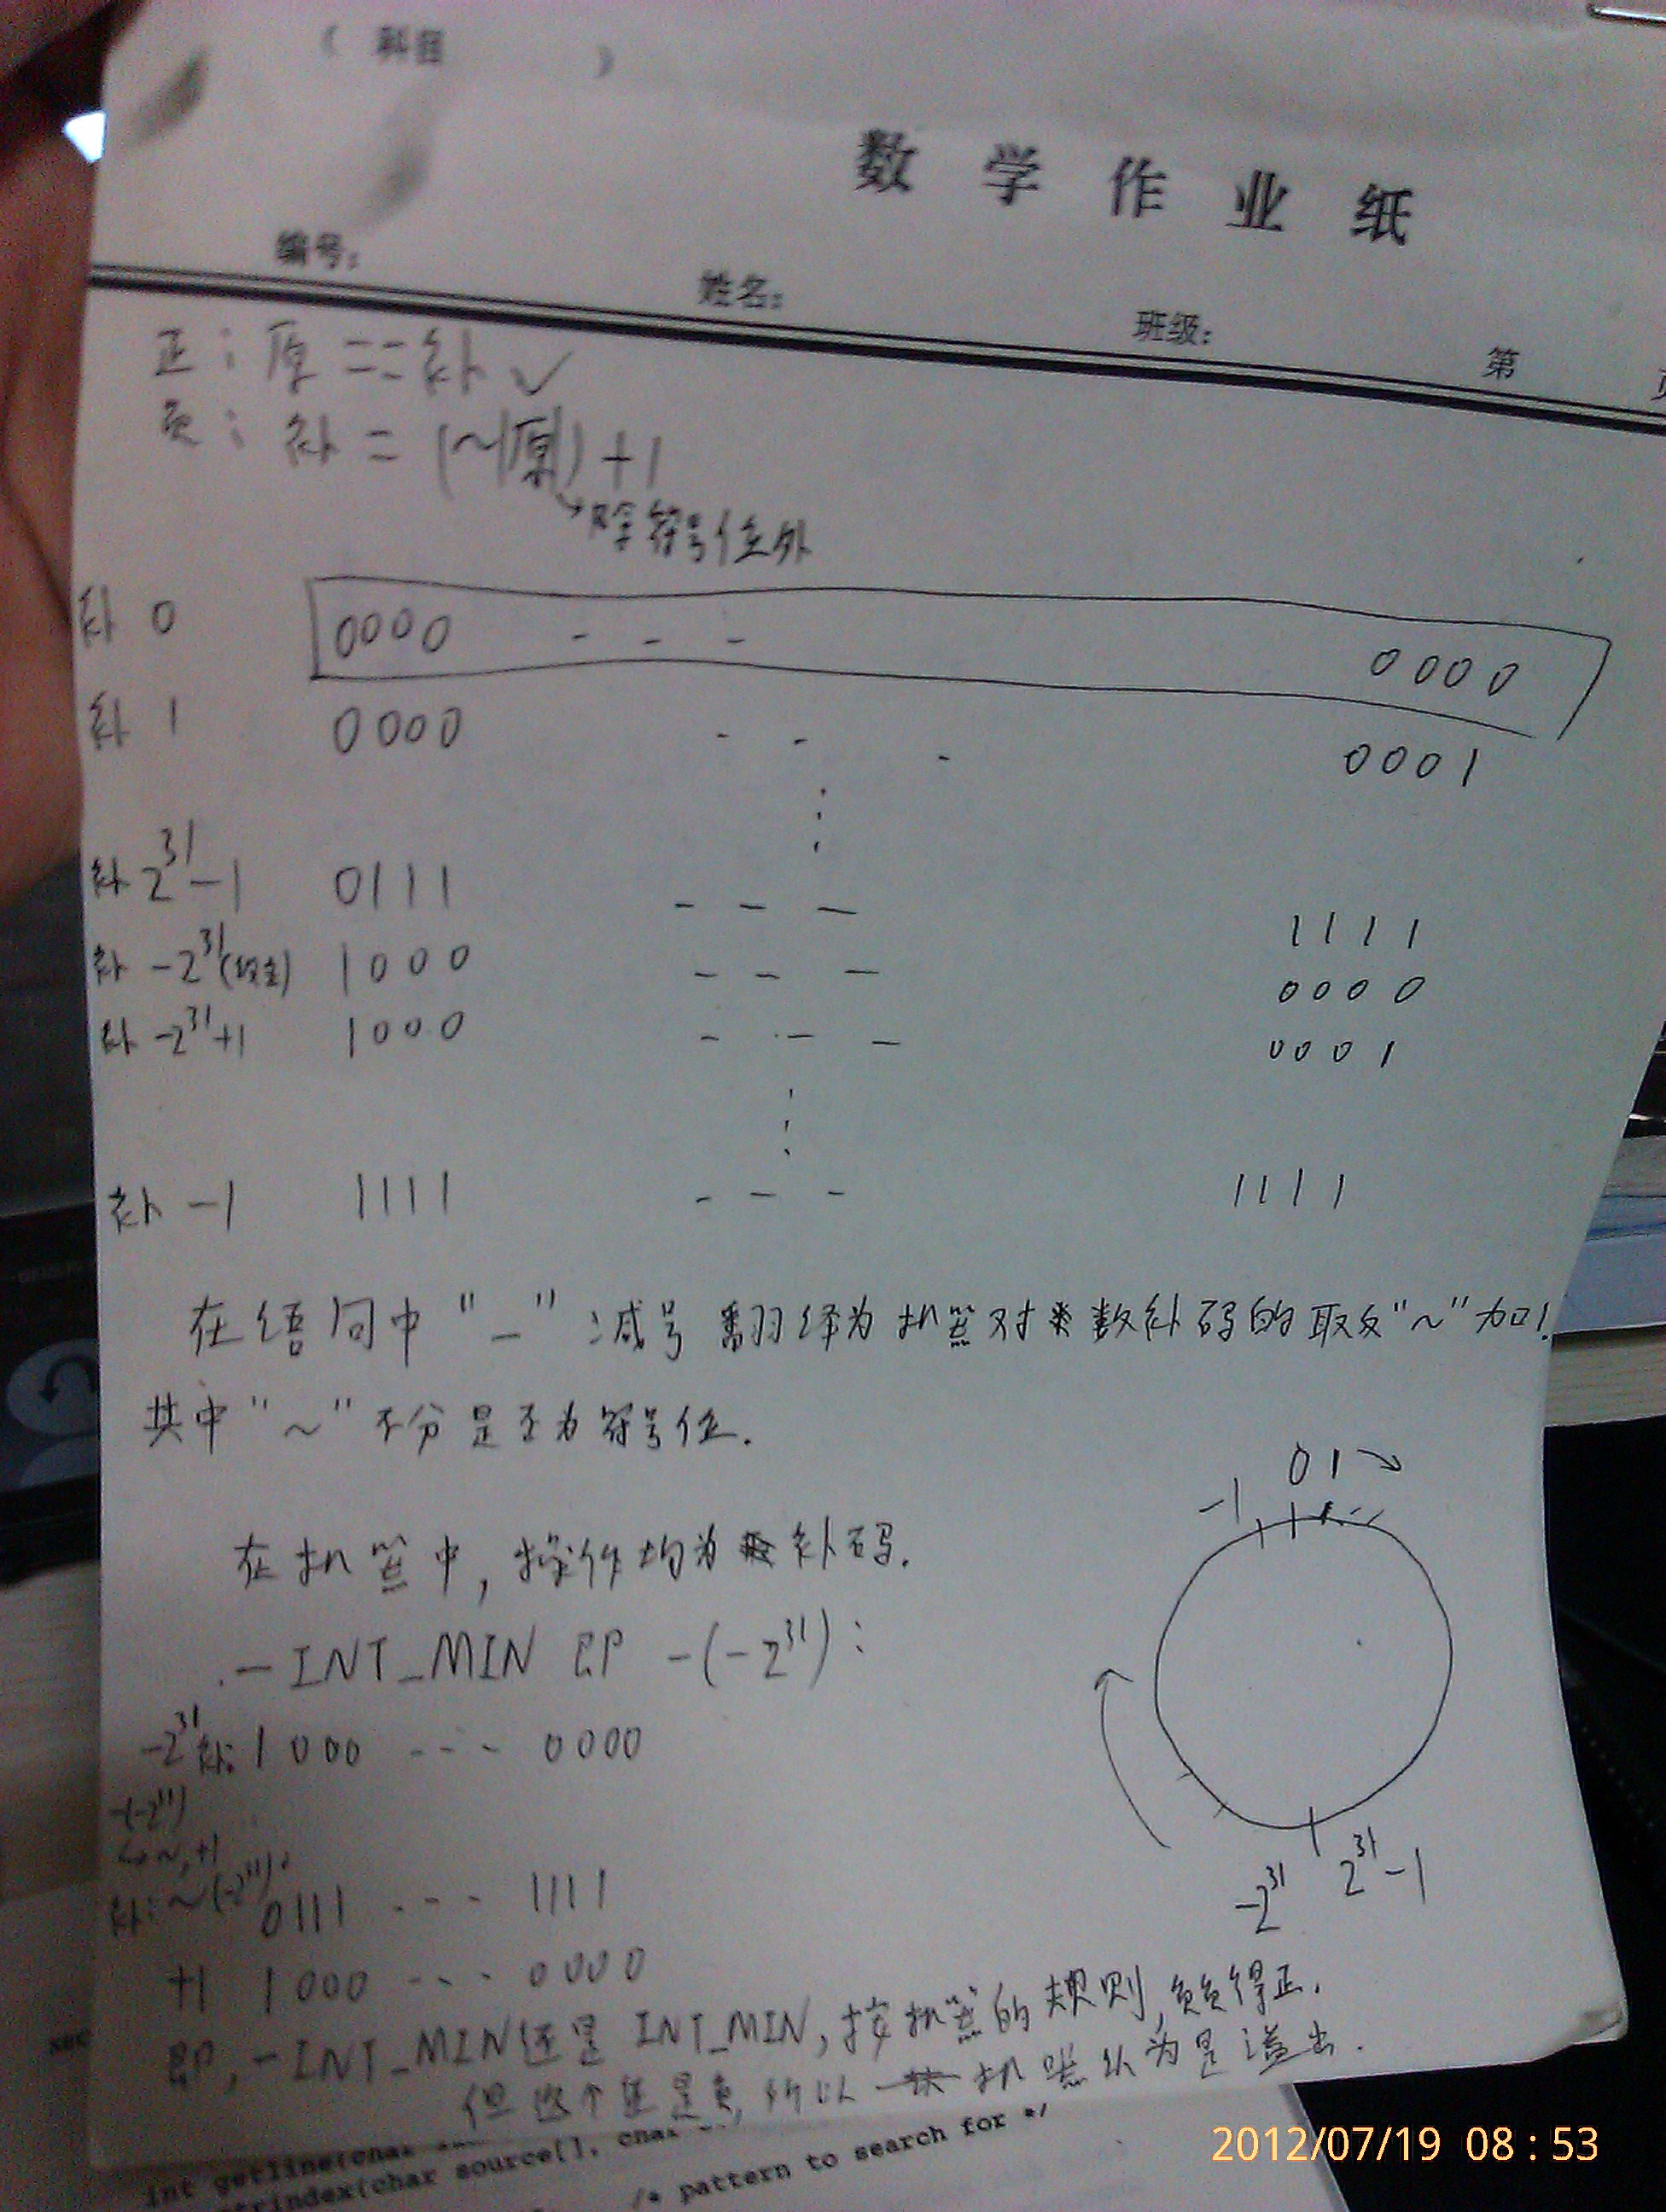 ( 科目 )
数学作业纸
编号:
姓名:
班级:
第
正: 原 == 补 ✓
负: 补 = (~|原|) + 1
除符号位外
补 0 0000 - - - 0000
补 1 0000 - - - 0001
补 2^31-1 0111 - - - 1111
补 -2^31(规定) 1000 - - - 0000
补 -2^31+1 1000 - - - 0001
补 -1 1111 - - - 1111
在语句中“-”减号翻译为机器对数补码的取反“~”加1.
其中“~”不分是否为符号位.
在机器中, 操作均为补码.
-INT_MIN 即 -(-2^31):
-2^31补: 1000 --- 0000
-(-2^31)
↳~,+1
补: ~(-2^31):
0111 --- 1111
+1 1000 --- 0000
即, -INT_MIN还是 INT_MIN, 按机器的规则, 负负得正.
但这个还是负, 所以机器认为是溢出.
-1 0 1 →
-2^31 2^31-1
int getline(char
strindex(char source[], char
/* pattern to search for */
2012/07/19 08:53